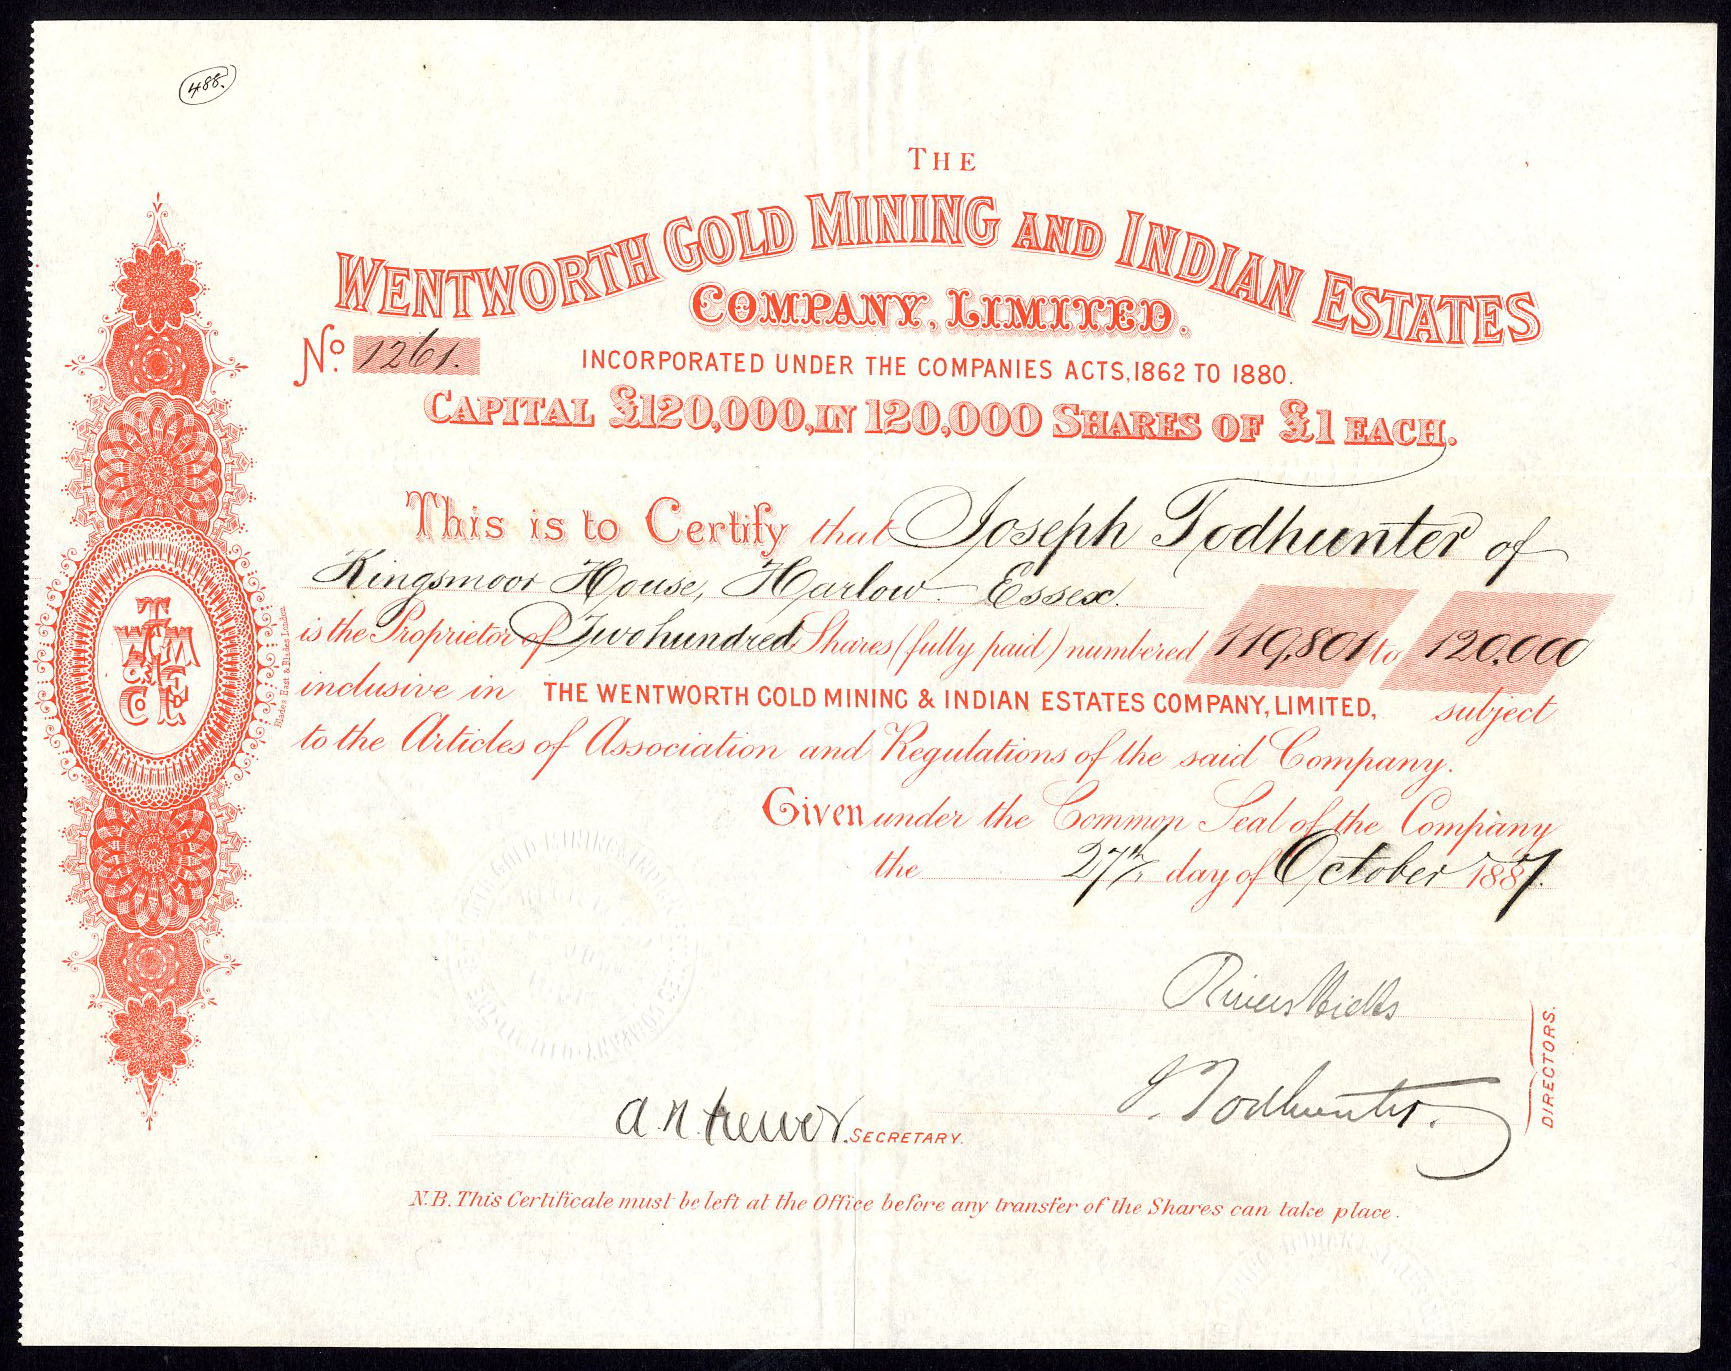 488.
THE
WENTWORTH GOLD MINING AND INDIAN ESTATES
COMPANY, LIMITED.
No. 1261.
INCORPORATED UNDER THE COMPANIES ACTS, 1862 TO 1880.
CAPITAL £120,000, IN 120,000 SHARES OF £1 EACH.
This is to Certify that Joseph Todhunter of
Kingsmoor House, Harlow Essex.
is the Proprietor of Two hundred Shares (fully paid) numbered 119,801 to 120,000
inclusive in THE WENTWORTH GOLD MINING & INDIAN ESTATES COMPANY, LIMITED, subject
to the Articles of Association and Regulations of the said Company.
Given under the Common Seal of the Company
the 27th day of October 1887.
J. Todhunter.
DIRECTORS.
SECRETARY.
N.B. This Certificate must be left at the Office before any transfer of the Shares can take place.
Blades East & Blades London